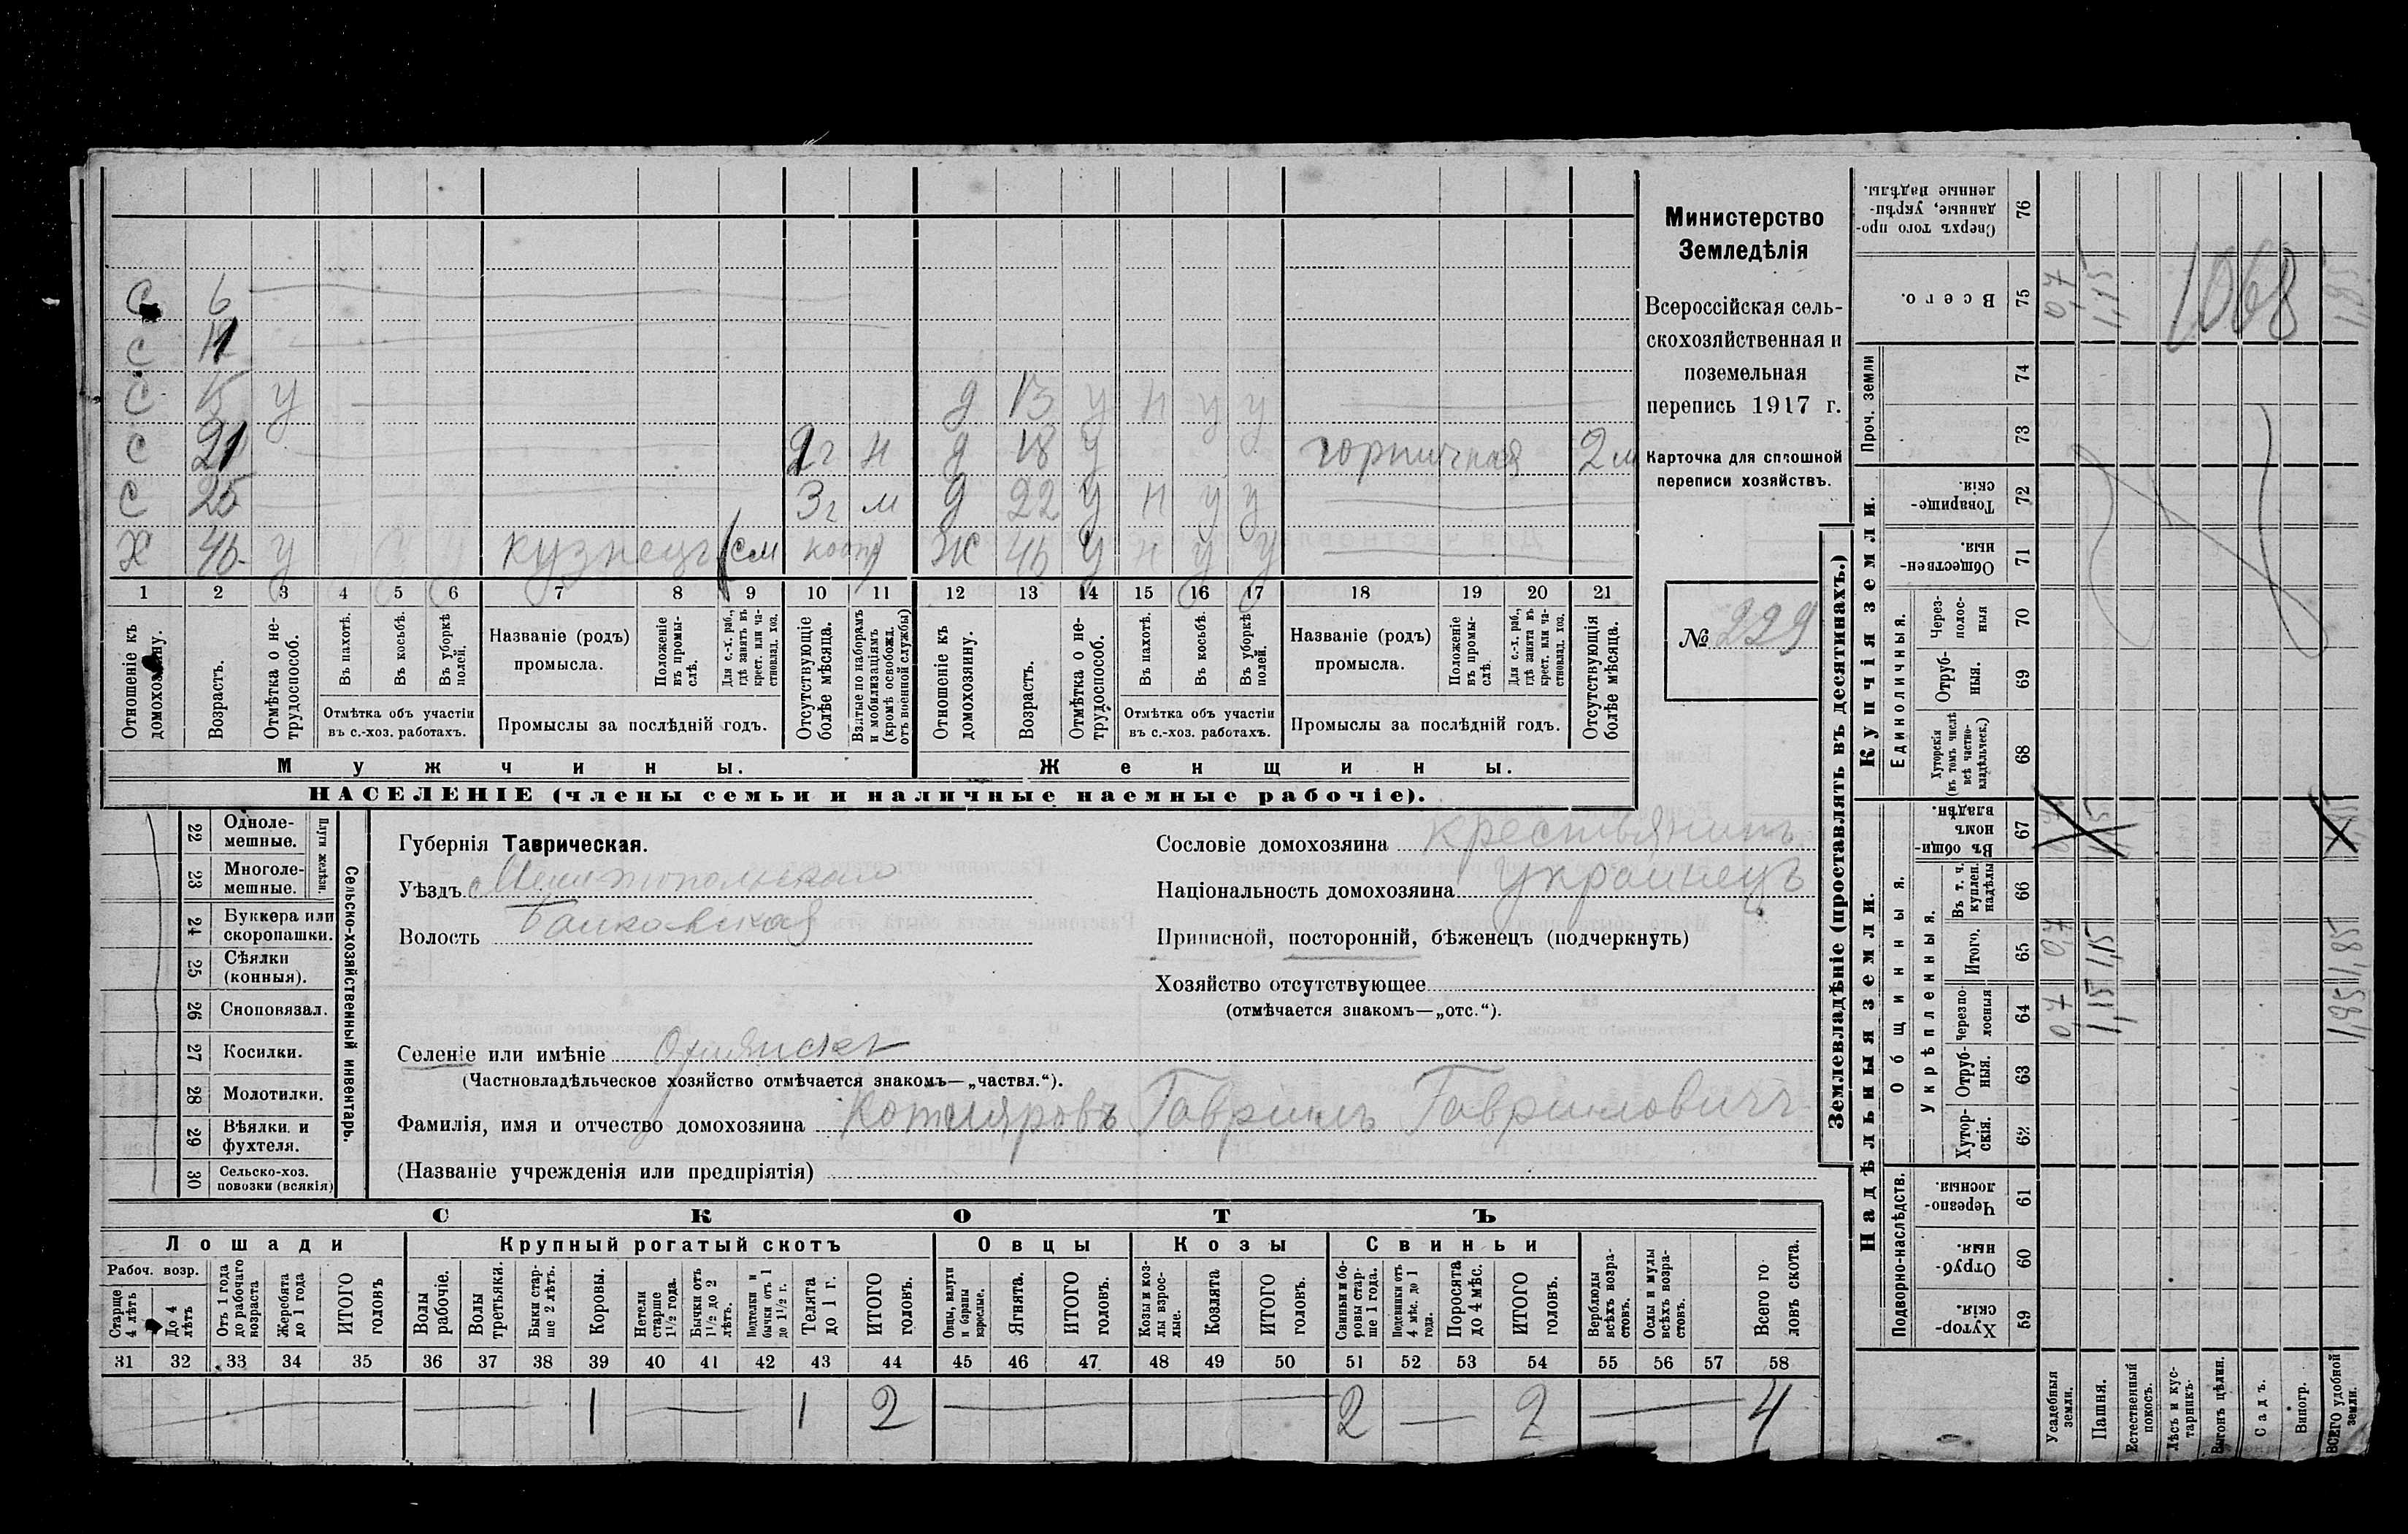 С 6
С 11
С 15 у д 13 у н у у
С 21 2г н д 18 у горничная 2 м
С 25 3г м д 22 у н у у
Х 46 у кузнецъ Ж 46 у н у у
1 2 3 4 5 6 7 8 9 10 11 12 13 14 15 16 17 18 19 20 21
Отношеніе къ домохозяину.
Возрастъ.
Отмѣтка о не-трудоспособ.
Въ пахотѣ.
Въ косьбѣ.
Въ уборкѣ полей.
Отмѣтка объ участіи
въ с.-хоз. работахъ.
Названіе (родъ)
промысла.
Положеніе въ промы-слѣ.
Для с.-х. раб., гдѣ занятъ въ крест. или ча-стновлад. хоз.
Промыслы за послѣдній годъ.
Отсутствующіе болѣе мѣсяца.
Взятые по наборамъ и мобилизаціямъ (кромѣ освобожд. отъ военной службы)
Отношеніе къ домохозяину.
Возрастъ.
Отмѣтка о не-трудоспособ.
Въ пахотѣ.
Въ косьбѣ.
Въ уборкѣ полей.
Отмѣтка объ участіи
въ с.-хоз. работахъ.
Названіе (родъ)
промысла.
Положеніе въ промы-слѣ.
Для с.-х. раб., гдѣ занята въ крест. или ча-стновлад. хоз.
Промыслы за послѣдній годъ.
Отсутствующія болѣе мѣсяца.
Мужчины. Женщины.
НАСЕЛЕНІЕ (члены семьи и наличные наемные рабочіе).
Министерство
Земледѣлія
Всероссійская сель-
скохозяйственная и
поземельная
перепись 1917 г.
Карточка для сплошной
переписи хозяйствъ.
№ 229
Сельско-хозяйственный инвентарь.
Плуги желѣзн.
22 Одноле-мешные.
23 Многоле-мешные.
24 Буккера или скоропашки.
25 Сѣялки (конныя).
26 Сноповязал.
27 Косилки.
28 Молотилки.
29 Вѣялки и фухтеля.
30 Сельско-хоз. повозки (всякія)
Губернія Таврическая.
Уѣздъ Мелитопольскій
Волость
Сословіе домохозяина крестьянинъ
Національность домохозяина Украинецъ
Приписной, посторонній, бѣженецъ (подчеркнуть)
Хозяйство отсутствующее
(отмѣчается знакомъ—„отс.“).
Селеніе или имѣніе
(Частновладѣльческое хозяйство отмѣчается знакомъ—„частвл.“).
Фамилія, имя и отчество домохозяина Котляровъ Гавриилъ Гавриловичъ
(Названіе учрежденія или предпріятія)
СКОТЪ
Лошади Крупный рогатый скотъ Овцы Козы Свиньи
Рабоч. возр.
Старше 4 лѣтъ
До 4 лѣтъ
Отъ 1 года до рабочаго возраста
Жеребята до 1 года
ИТОГО головъ
Волы рабочіе.
Волы третьяки.
Быки стар-ше 2 лѣтъ.
Коровы.
Нетели старше 1½ года.
Бычки отъ 1½ до 2 лѣтъ.
Подтелки и бычки отъ 1 до 1½ г.
Телята до 1 г.
ИТОГО головъ.
Овцы, валухи и бараны взрослые.
Ягнята.
ИТОГО головъ.
Козы и коз-лы взрос-лые.
Козлята
ИТОГО головъ.
Свиньи и бо-ровы стар-ше 1 года.
Подсвинки отъ 4 мѣс. до 1 года.
Поросята до 4 мѣс.
ИТОГО головъ.
Верблюды всѣхъ возра-стовъ.
Ослы и мулы всѣхъ возра-стовъ.
Всего го-ловъ скота.
31 32 33 34 35 36 37 38 39 40 41 42 43 44 45 46 47 48 49 50 51 52 53 54 55 56 57 58
1 1 2 2 2 4
Землевладѣніе (проставлять въ десятинахъ.)
Надѣльныя земли. Купчія земли. Проч. земли
Подворно-наслѣдств.
Общинныя.
Укрѣпленныя.
Единоличныя.
59 Хутор-скія.
60 Отруб-ныя.
61 Черезпо-лосныя.
62 Хутор-скія.
63 Отруб-ныя.
64 Черезпо-лосныя
65 Итого.
66 Въ т. ч. куплен. надѣлы
67 Въ общи-номъ владѣн.
68 Хуторскія (въ томъ числѣ всѣ частно-владѣльческ.)
69 Отруб-ныя.
70 Через-полос-ныя
71 Обществен-ныя.
72 Товарище-скія.
73
74
75 Всего.
76 Сверхъ того про-данные, укрѣп-ленные надѣлы.
Усадебныя земли. 0,7 0,7 0,7
Пашня. 1,15 1,15 1,15
Естественный покосъ.
Лѣсъ и кус-тарникъ.
Выгонъ цѣлин.
Садъ.
Виногр.
ВСЕГО удобной земли. 1,85 1,85 1,85
1068